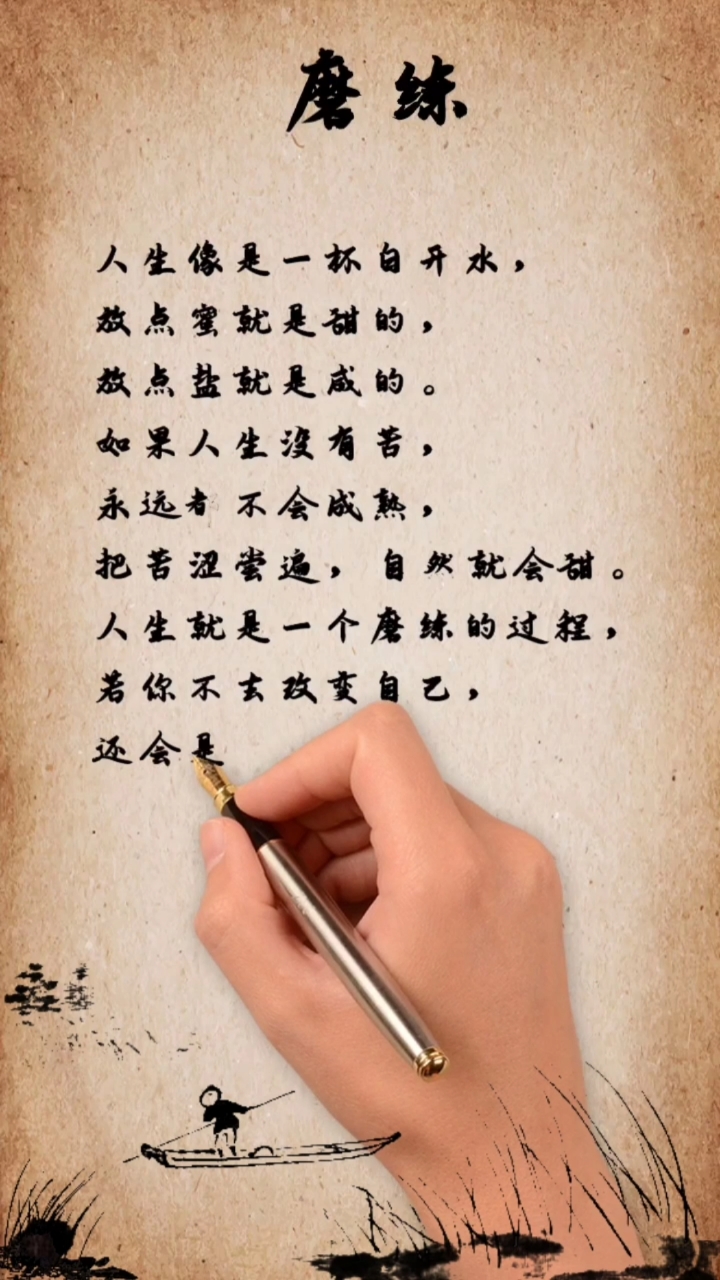 磨练
人生像是一杯白开水，
放点蜜就是甜的，
放点盐就是咸的。
如果人生没有苦，
永远者 不会成熟，
把苦涩尝遍，自然就会甜。
人生就是一个磨练的过程，
若你不去改变自己，
还会是